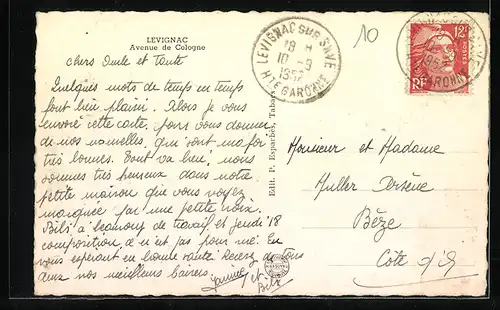 LEVIGNAC
Avenue de Cologne
chers Oncle et tante
Quelques mots de temps en temps
font bien plaisir. Alors je vous
envoie cette carte, pour vous donner
de nos nouvelles, qui sont ma foi
très bonnes. Tout va bien, nous
sommes très heureux dans notre
petite maison que vous voyez
marquée par une petite croix.
à beaucoup de travail, et jeudi 18
composition, ce n'est pas pour me. En
vous espérant en bonne santé Recevez de tous
deux nos meilleurs baisers.
et
Edit. P. Esparbès, Tabacs
LEVIGNAC SUR SAVE
18 H
10 - 9
1952
HTE GARONNE
10
12F
POSTES
RF
1952
GARONNE
Monsieur et Madame
Muller Arsène
Bèze
Côte d'Or